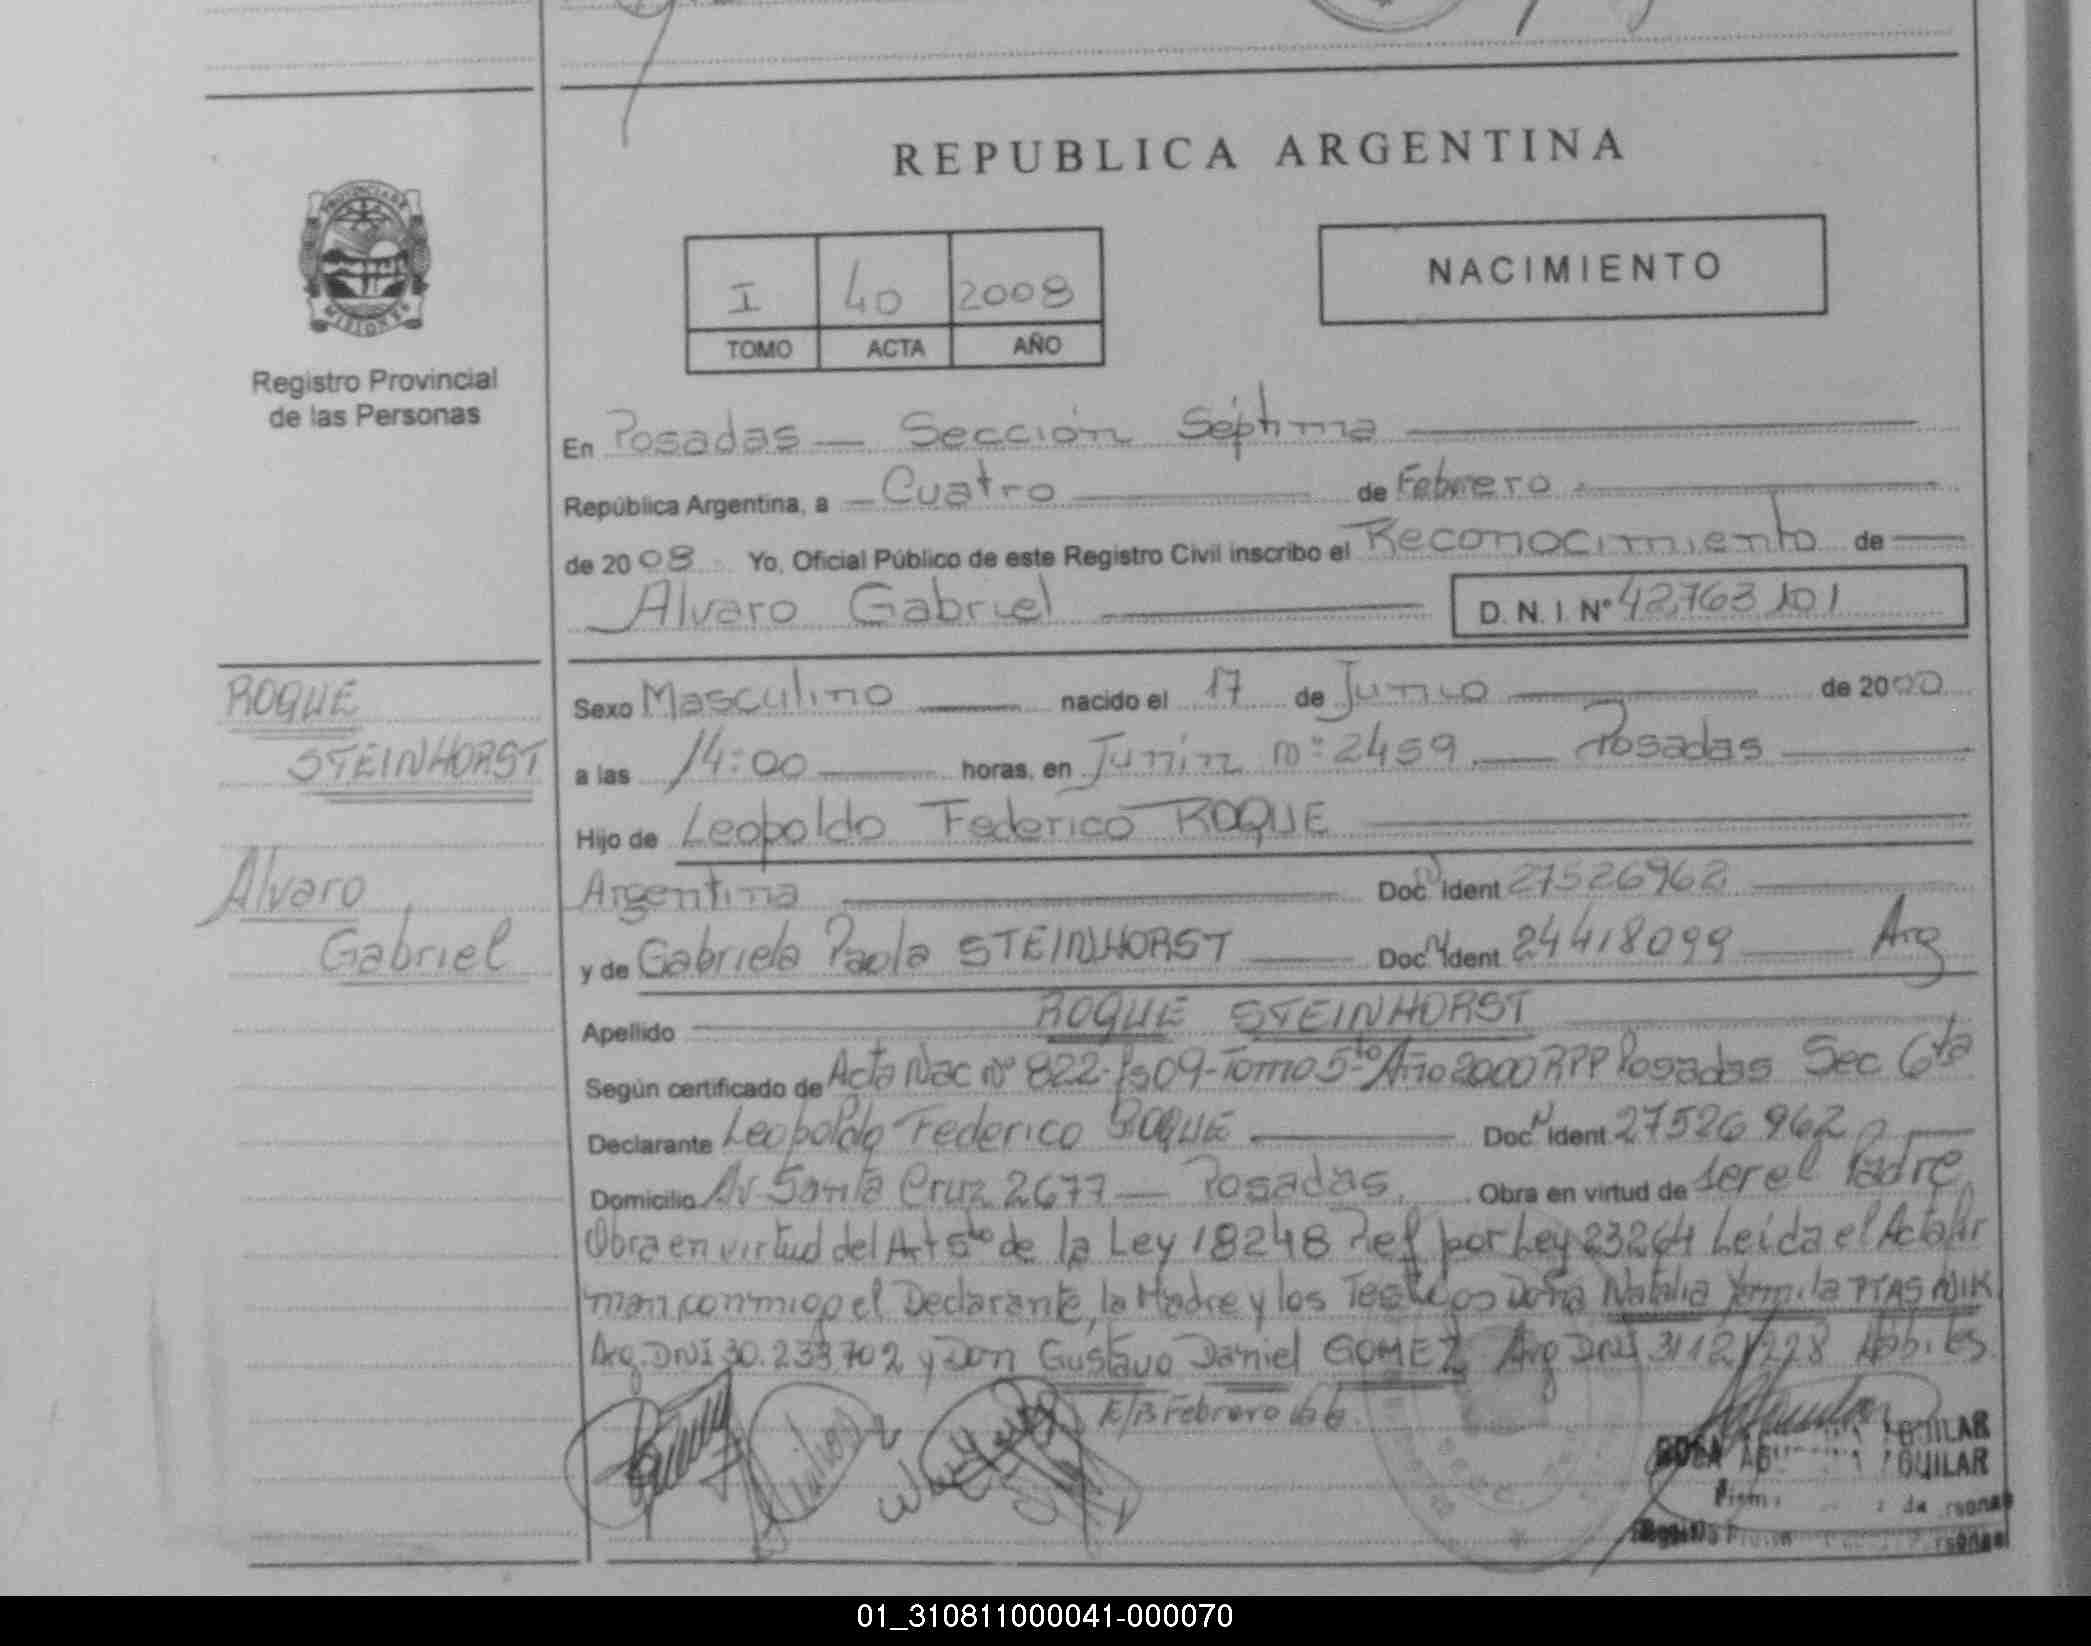 REPUBLICA ARGENTINA
PROVINCIA DE MISIONES
Registro Provincial
de las Personas
I 40 2008
TOMO ACTA AÑO
NACIMIENTO
En Posadas — Sección Séptima
República Argentina, a — Cuatro de Febrero
de 2008 Yo, Oficial Público de este Registro Civil inscribo el Reconocimiento de
Alvaro Gabriel D. N. I. Nº 42763101
ROQUE
STEINHORST
Alvaro
Gabriel
Sexo Masculino nacido el 17 de Junio de 2000
a las 14:00 horas, en Junin nº 2459 — Posadas
Hijo de Leopoldo Federico ROQUE
Argentina Doc Ident 27526962
y de Gabriela Paola STEINHORST Doc Ident 24418099 Arg
Apellido ROQUE STEINHORST
Según certificado de Acta Nac Nº 822 - Fs 09 - Tomo 5to Año 2000 RPP Posadas Sec 6ta
Declarante Leopoldo Federico ROQUE Doc Ident 27526962
Domicilio Av Santa Cruz 2677 — Posadas. Obra en virtud de ser el Padre
Obra en virtud del Art 5to de la Ley 18248 Ref por Ley 23264 Leída el Acta fir
man conmigo el Declarante, la Madre y los Testigos Doña Natalia PTASNIK
Arg. DNI 30.233702 y Don Gustavo Daniel GOMEZ Arg DNI Hábiles
E/B Febrero
AGUILAR
ROSA AGUILAR
01_310811000041-000070